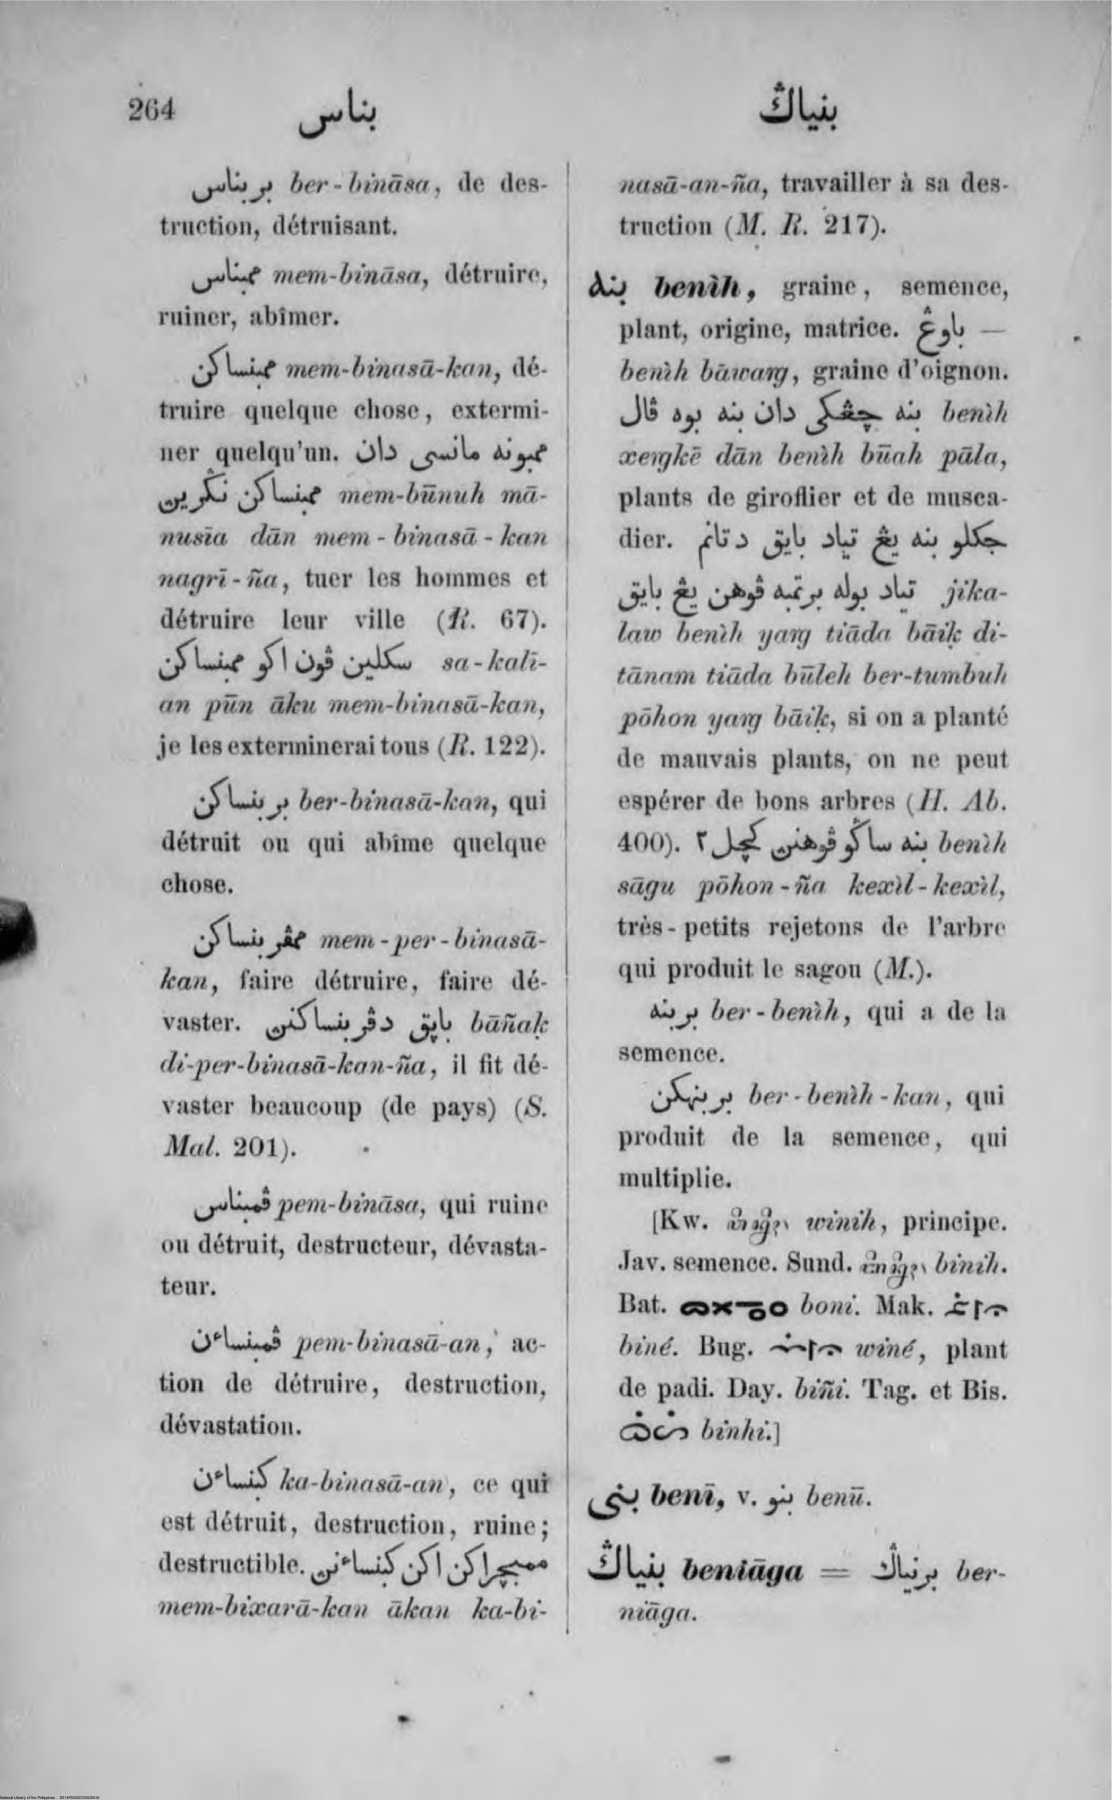 264
بناس
بنياڬ
بربناس ber-bināsa, de des-
truction, détruisant.
ممبناس mem-bināsa, détruire,
ruiner, abîmer.
ممبنساكن mem-binasā-kan, dé-
truire quelque chose, extermi-
ner quelqu'un. ممبونه مانسي دان
ممبنساكن نڬرين mem-būnuh mā-
nusīa dān mem-binasā-kan
nagrī-ña, tuer les hommes et
détruire leur ville (R. 67).
سكلين ڤون اكو ممبنساكن sa-kalī-
an pūn āku mem-binasā-kan,
je les exterminerai tous (R. 122).
بربنساكن ber-binasā-kan, qui
détruit ou qui abîme quelque
chose.
ممڤربنساكن mem-per-binasā-
kan, faire détruire, faire dé-
vaster. باڽق دڤربنساكنن bāñaḳ
di-per-binasā-kan-ña, il fit dé-
vaster beaucoup (de pays) (S.
Mal. 201).
ڤمبناس pem-bināsa, qui ruine
ou détruit, destructeur, dévasta-
teur.
ڤمبنساءن pem-binasā-an, ac-
tion de détruire, destruction,
dévastation.
كبنساءن ka-binasā-an, ce qui
est détruit, destruction, ruine;
destructible. ممبچراكن اكن كبنساءنن
mem-bixarā-kan ākan ka-bi-
nasā-an-ña, travailler à sa des-
truction (M. R. 217).
بنه benìh, graine, semence,
plant, origine, matrice. باوڠ —
benìh bāwaŋg, graine d'oignon.
بنه چڠكي دان بنه بوه ڤال benìh
xeŋgkē dān benìh būah pāla,
plants de giroflier et de musca-
dier. جكلو بنه يڠ تياد بايق دتانم
تياد بوله برتمبه ڤوهن يڠ بايق jika-
law benìh yaŋg tiāda bāiḳ di-
tānam tiāda būleh ber-tumbuh
pōhon yaŋg bāiḳ, si on a planté
de mauvais plants, on ne peut
espérer de bons arbres (H. Ab.
400). بنه ساڬو ڤوهنن كچل٢ benìh
sāgu pōhon-ña kexìl-kexìl,
très-petits rejetons de l'arbre
qui produit le sagou (M.).
بربنه ber-benìh, qui a de la
semence.
بربنهكن ber-benìh-kan, qui
produit de la semence, qui
multiplie.
[Kw. winih, principe.
Jav. semence. Sund. binih.
Bat. boni. Mak.
biné. Bug. winé, plant
de padi. Day. biñi. Tag. et Bis.
binhi.]
بني benī, v. بنو benū.
بنياڬ beniāga = برنياڬ ber-
niāga.